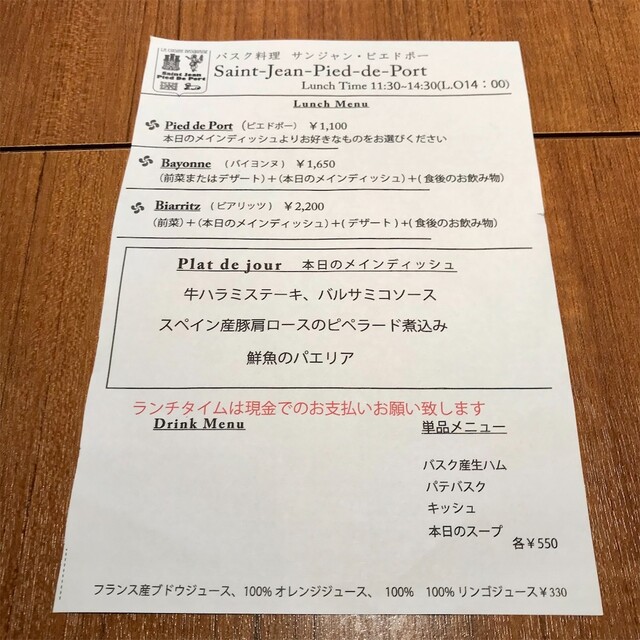 Saint Jean
Pied De Port
バスク料理 サンジャン・ピエドポー
Saint-Jean-Pied-de-Port
Lunch Time 11:30~14:30(L.O14：00)
Lunch Menu
Pied de Port （ピエドポー） ￥1,100
本日のメインディッシュよりお好きなものをお選びください
Bayonne （バイヨンヌ） ￥1,650
（前菜またはデザート）＋（本日のメインディッシュ）＋（食後のお飲み物）
Biarritz （ビアリッツ） ￥2,200
（前菜）＋（本日のメインディッシュ）＋（デザート）＋（食後のお飲み物）
Plat de jour 本日のメインディッシュ
牛ハラミステーキ、バルサミコソース
スペイン産豚肩ロースのピペラード煮込み
鮮魚のパエリア
ランチタイムは現金でのお支払いお願い致します
Drink Menu 単品メニュー
バスク産生ハム
パテバスク
キッシュ
本日のスープ
各￥550
フランス産ブドウジュース、100% オレンジジュース、 100% 100% リンゴジュース￥330